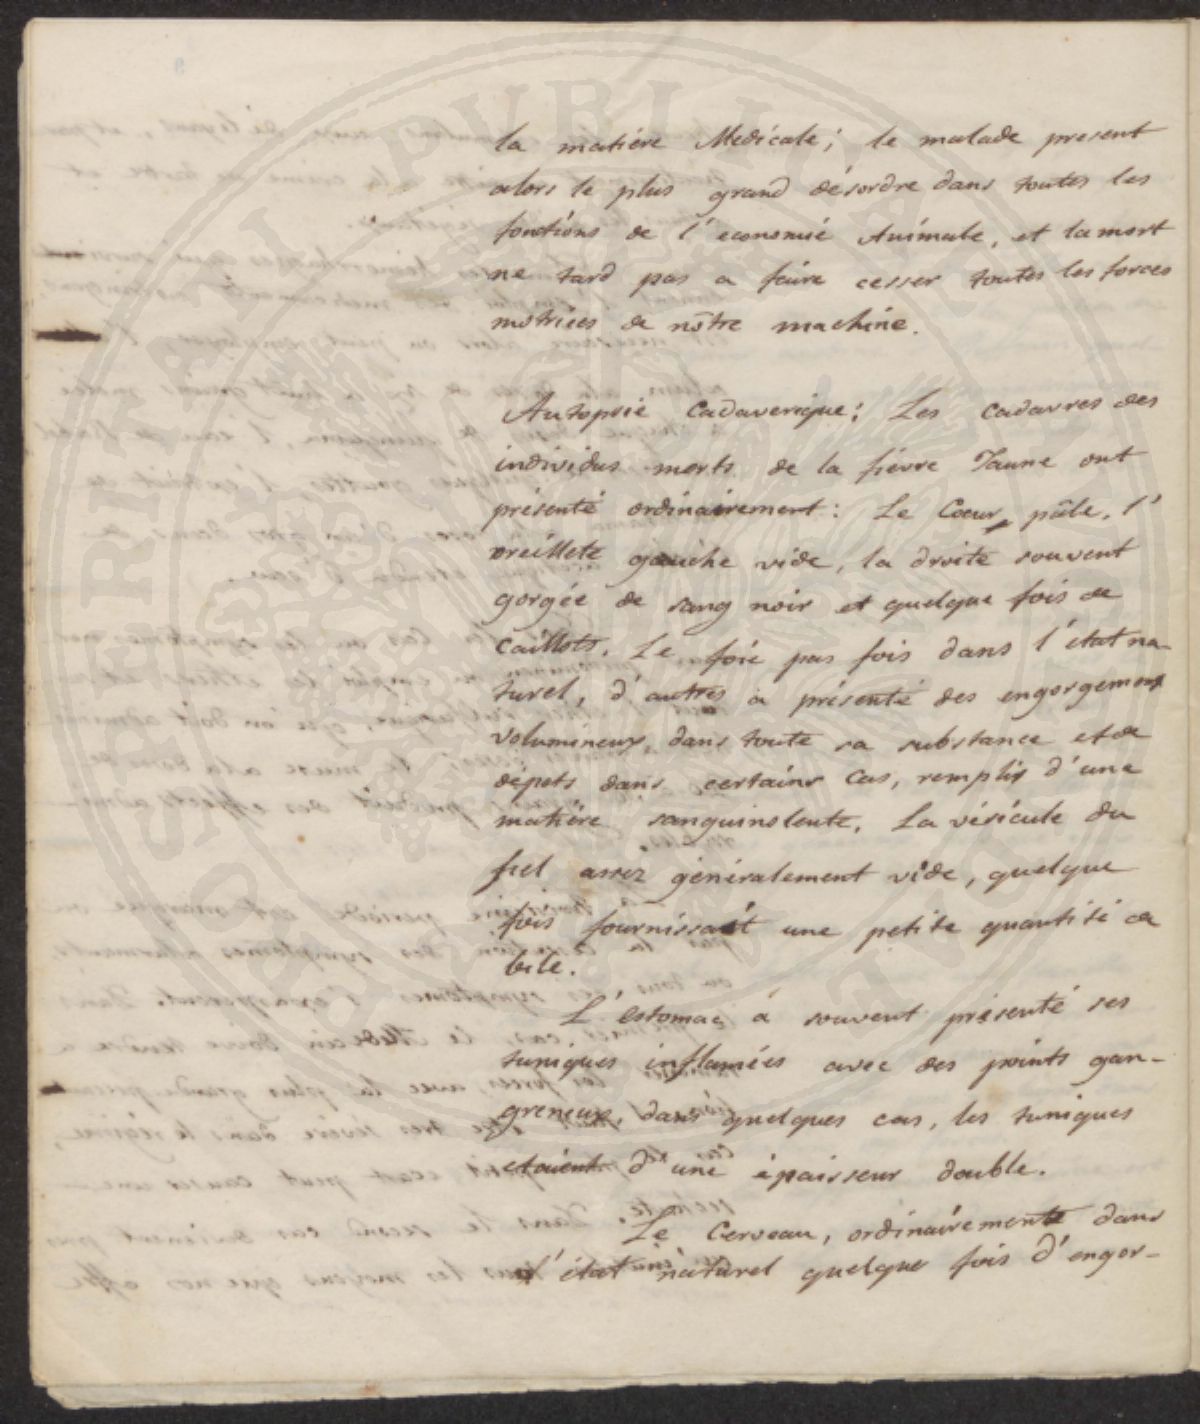 la matiére Medicale; le malade present
alors le plus grand désordre dans toutes les
fonctions de l'economie Animale, et la mort
ne tard pas a faire cesser toutes les forces
motrices de nôtre machine.
Autopsie Cadaverique: Les cadavres des
individus morts de la fiévre Jaune ont
présenté ordinairement: Le Coeur pâle, l'
oreillete gauche vide, la droite souvent
gorgée de sang noir et quelque fois de
Caillots. Le foie pas fois dans l'état na-
turel, d'autres a présenté des engorgement
volumineux, dans toute sa substance et de
dépots dans certains Cas, remplis d'une
matiére sanguinolente. La vésicule du
fiel assez généralement vide, quelque
fois fournissait une petite quantité de
bile.
L'estomac a souvent présenté ses
tuniques inflamées avec des points gan-
greneux, dans quelques cas, les tuniques
etaient d'une épaisseur double.
Le Cerveau, ordinairement dans
l'état naturel quelque fois d'engor-